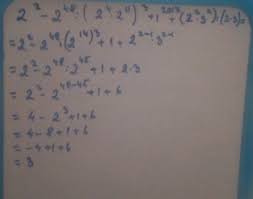 2² - 2⁴⁸ : (2⁴ · 2¹¹)³ + 1²⁰¹³ + (2² · 3²) : (2·3) =
= 2² - 2⁴⁸ : (2¹⁴)³ + 1 + 2²⁻¹ · 3²⁻¹
= 2² - 2⁴⁸ : 2⁴⁵ + 1 + 2 · 3
= 2² - 2⁴⁸⁻⁴⁵ + 1 + 6
= 4 - 2³ + 1 + 6
= 4 - 8 + 1 + 6
= -4 + 1 + 6
= 3